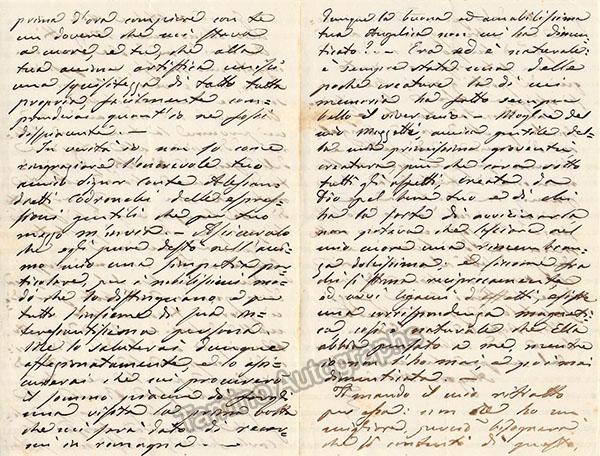 prima d'ora compiere con te
un dovere che mi stava
a cuore, ed tu, che alla
tua anima artistica unisci
una squisitezza di tatto tutta
propria, facilmente com-
prenderai quant'io ne fossi
dispiacente. —
In verità io non so come
ringraziare l'onorevole tuo
amico Signor Conte Alessan-
dretti Codronchi delle espres-
sioni gentili che per tuo
mezzo m'invia. — Assicuralo
che egli pure destò nell'ani-
mo mio una simpatia par-
ticolare, pei nobilissimi mo-
di che lo distinguono, e per
tutto l'insieme di sua in-
teressantissima persona.
Me lo saluterai dunque
affezionatamente, e lo assi-
curerai che mi procurerò
il sommo piacere di farli
una visita la prima volta
che mi sarà dato di recar-
mi in Romagna. —
Dunque la buona ed amabilissima
tua Angelica non mi ha dimen-
ticato?.. — Era ed è naturale:
è sempre stata una delle
poche creature la di cui
memoria ha fatto sempre
bello il viver mio — Moglie del
mio Masetti, amica gentile del-
la mia primissima gioventù
creatura più che cara sotto
tutti gli aspetti, creata da
Dio pel bene tuo e di chi
ha la sorte di avvicinarla
non poteva che lasciare nel
mio cuore una rimembran-
za dolcissima; e siccome fra
chi si stima reciprocamente
ed avvi legami d'affetti, esiste
una corrispondenza magneti-
ca, così è naturale che Ella
abbia pensato a me, mentre
io non l'ho mai, e poi mai
dimenticata —
Ti mando il mio ritratto
per essa: non ne ho un
migliore, perciò bisognerà
che si contenti di questo,
Tamino Autographs